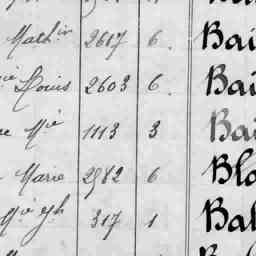 Mathin 2617 6. Bai
ie Louis 2603 6. Bai
ue Mie 1113 3 Bai
Marie 2982 6 Blo
Mie Jh 317 1 Bal